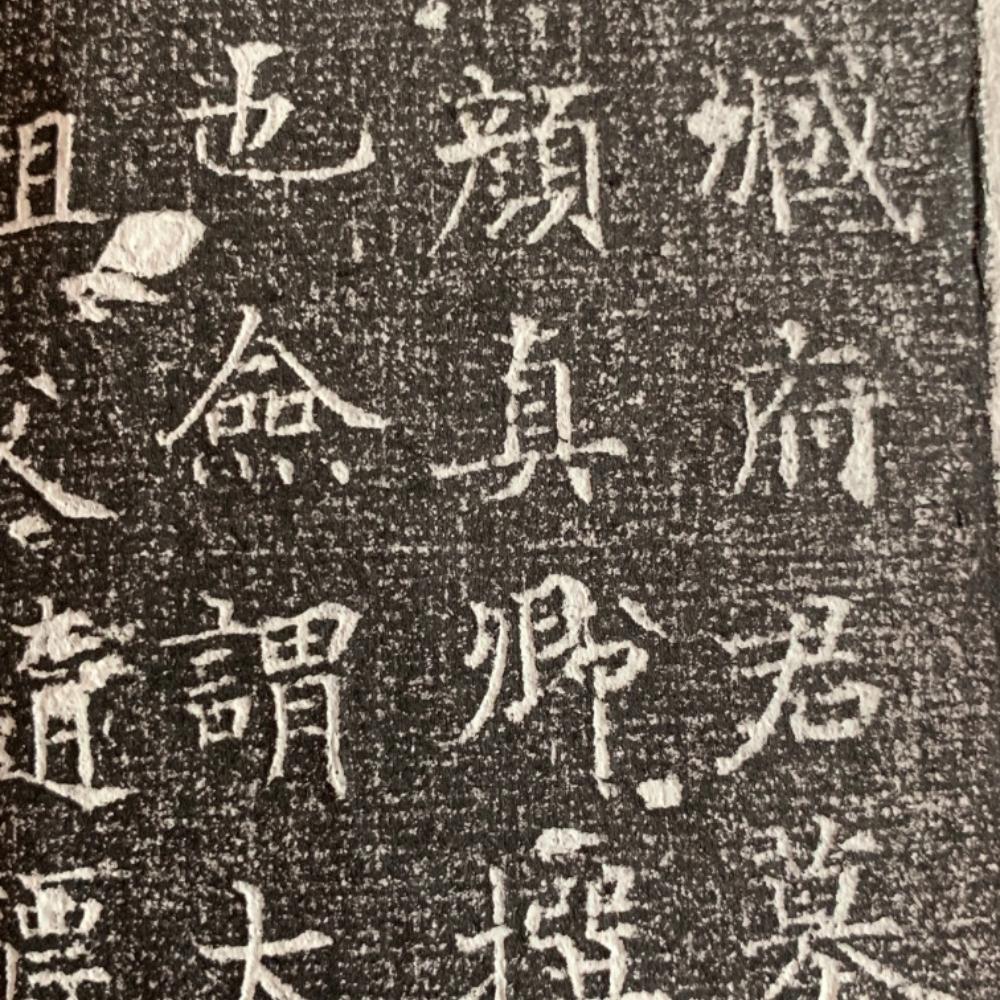 臧府君墓
顏真卿撰
也僉謂大
祖